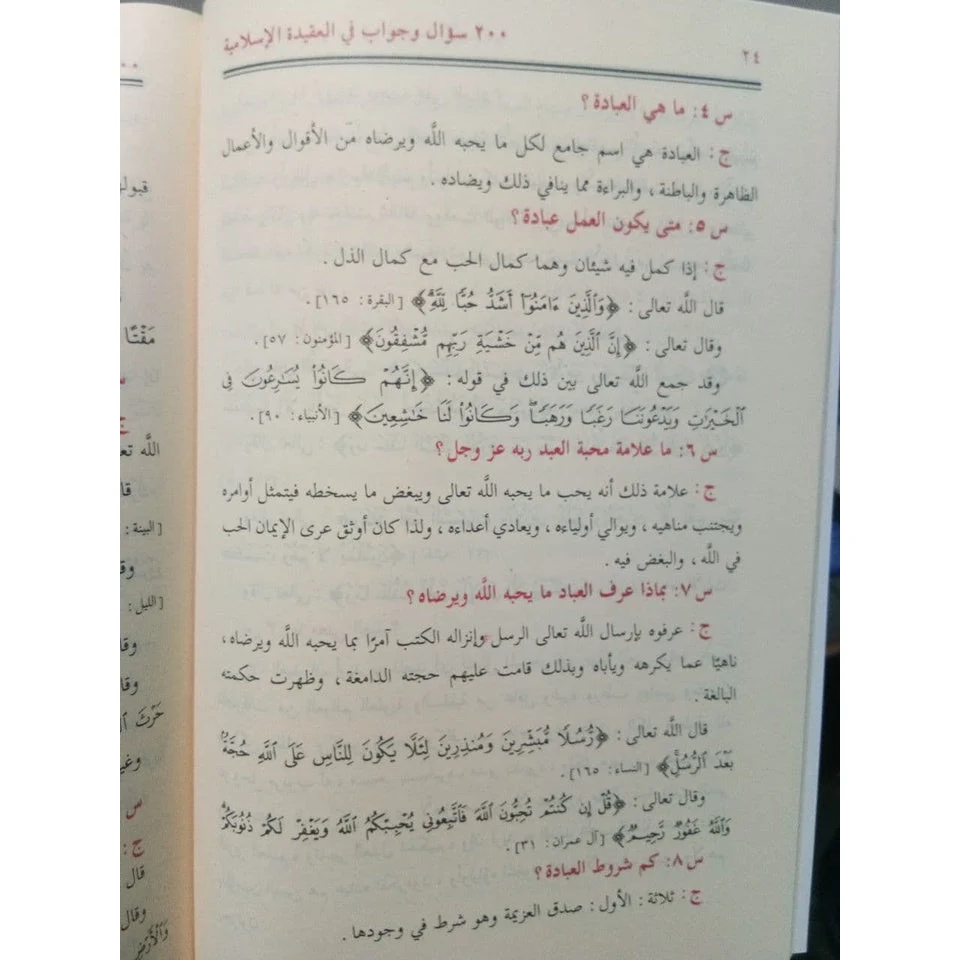 ٢٤
٢٠٠ سؤال وجواب في العقيدة الإسلامية
س ٤: ما هي العبادة؟
ج: العبادة هي اسم جامع لكل ما يحبه اللَّه ويرضاه من الأقوال والأعمال
الظاهرة والباطنة، والبراءة مما ينافي ذلك ويضاده.
س ٥: متى يكون العمل عبادة؟
ج: إذا كمل فيه شيئان وهما كمال الحب مع كمال الذل.
قال اللَّه تعالى: ﴿وَٱلَّذِينَ ءَامَنُوٓاْ أَشَدُّ حُبّٗا لِّلَّهِۗ﴾ [البقرة: ١٦٥].
وقال تعالى: ﴿إِنَّ ٱلَّذِينَ هُم مِّنۡ خَشۡيَةِ رَبِّهِم مُّشۡفِقُونَ﴾ [المؤمنون: ٥٧].
وقد جمع اللَّه تعالى بين ذلك في قوله: ﴿إِنَّهُمۡ كَانُواْ يُسَٰرِعُونَ فِي
ٱلۡخَيۡرَٰتِ وَيَدۡعُونَنَا رَغَبٗا وَرَهَبٗاۖ وَكَانُواْ لَنَا خَٰشِعِينَ﴾ [الأنبياء: ٩٠].
س ٦: ما علامة محبة العبد ربه عز وجل؟
ج: علامة ذلك أنه يحب ما يحبه اللَّه تعالى ويبغض ما يسخطه فيتمثل أوامره
ويجتنب مناهيه، ويوالي أولياءه، ويعادي أعداءه، ولذا كان أوثق عرى الإيمان الحب
في اللَّه، والبغض فيه.
س ٧: بماذا عرف العباد ما يحبه اللَّه ويرضاه؟
ج: عرفوه بإرسال اللَّه تعالى الرسل وإنزاله الكتب آمرًا بما يحبه اللَّه ويرضاه،
ناهيًا عما يكرهه ويأباه وبذلك قامت عليهم حجته الدامغة، وظهرت حكمته
البالغة.
قال اللَّه تعالى: ﴿رُّسُلٗا مُّبَشِّرِينَ وَمُنذِرِينَ لِئَلَّا يَكُونَ لِلنَّاسِ عَلَى ٱللَّهِ حُجَّةُۢ
بَعۡدَ ٱلرُّسُلِۚ﴾ [النساء: ١٦٥].
وقال تعالى: ﴿قُلۡ إِن كُنتُمۡ تُحِبُّونَ ٱللَّهَ فَٱتَّبِعُونِي يُحۡبِبۡكُمُ ٱللَّهُ وَيَغۡفِرۡ لَكُمۡ ذُنُوبَكُمۡۚ
وَٱللَّهُ غَفُورٞ رَّحِيمٞ﴾ [آل عمران: ٣١].
س ٨: كم شروط العبادة؟
ج: ثلاثة: الأول: صدق العزيمة وهو شرط في وجودها.
مَقۡتًا
اللَّه
[البينة:
[الليل:
س
ج:
قال
وقال